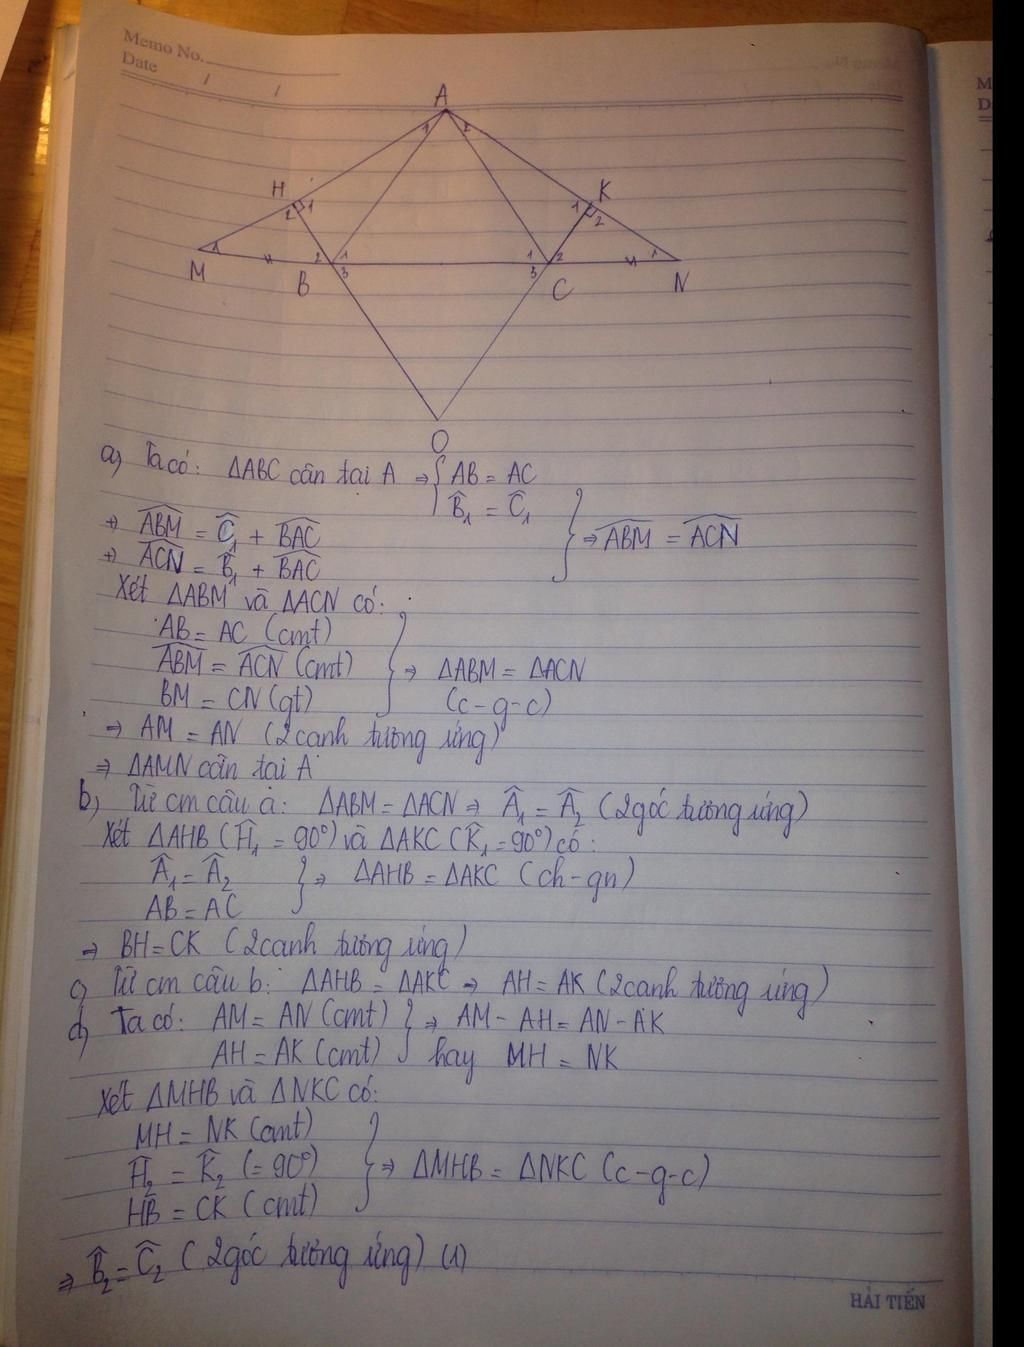 Memo No.
Date / /
A
1 2
H K
2 1 1 2
1 2 1 1 2 1
M B 3 3 C N
O
a) Ta có: ΔABC cân tại A ⇒ { AB = AC
B̂₁ = Ĉ₁
⇒ ABM̂ = Ĉ₁ + BAĈ } ⇒ ABM̂ = ACN̂
⇒ ACN̂ = B̂₁ + BAĈ
Xét ΔABM và ΔACN có:
AB = AC (cmt)
ABM̂ = ACN̂ (cmt) } ⇒ ΔABM = ΔACN
BM = CN (gt) (c-g-c)
⇒ AM = AN (2 cạnh tương ứng)
⇒ ΔAMN cân tại A
b) Từ cm câu a: ΔABM = ΔACN ⇒ Â₁ = Â₂ (2 góc tương ứng)
Xét ΔAHB (Ĥ₁ = 90°) và ΔAKC (K̂₁ = 90°) có:
Â₁ = Â₂ } ⇒ ΔAHB = ΔAKC (ch-gn)
AB = AC
⇒ BH = CK (2 cạnh tương ứng)
c) Từ cm câu b: ΔAHB = ΔAKC ⇒ AH = AK (2 cạnh tương ứng)
d) Ta có: AM = AN (cmt) } ⇒ AM - AH = AN - AK
AH = AK (cmt) hay MH = NK
Xét ΔMHB và ΔNKC có:
MH = NK (cmt)
Ĥ₂ = K̂₂ (= 90°) } ⇒ ΔMHB = ΔNKC (c-g-c)
HB = CK (cmt)
⇒ B̂₂ = Ĉ₂ (2 góc tương ứng) (1)
HẢI TIẾN